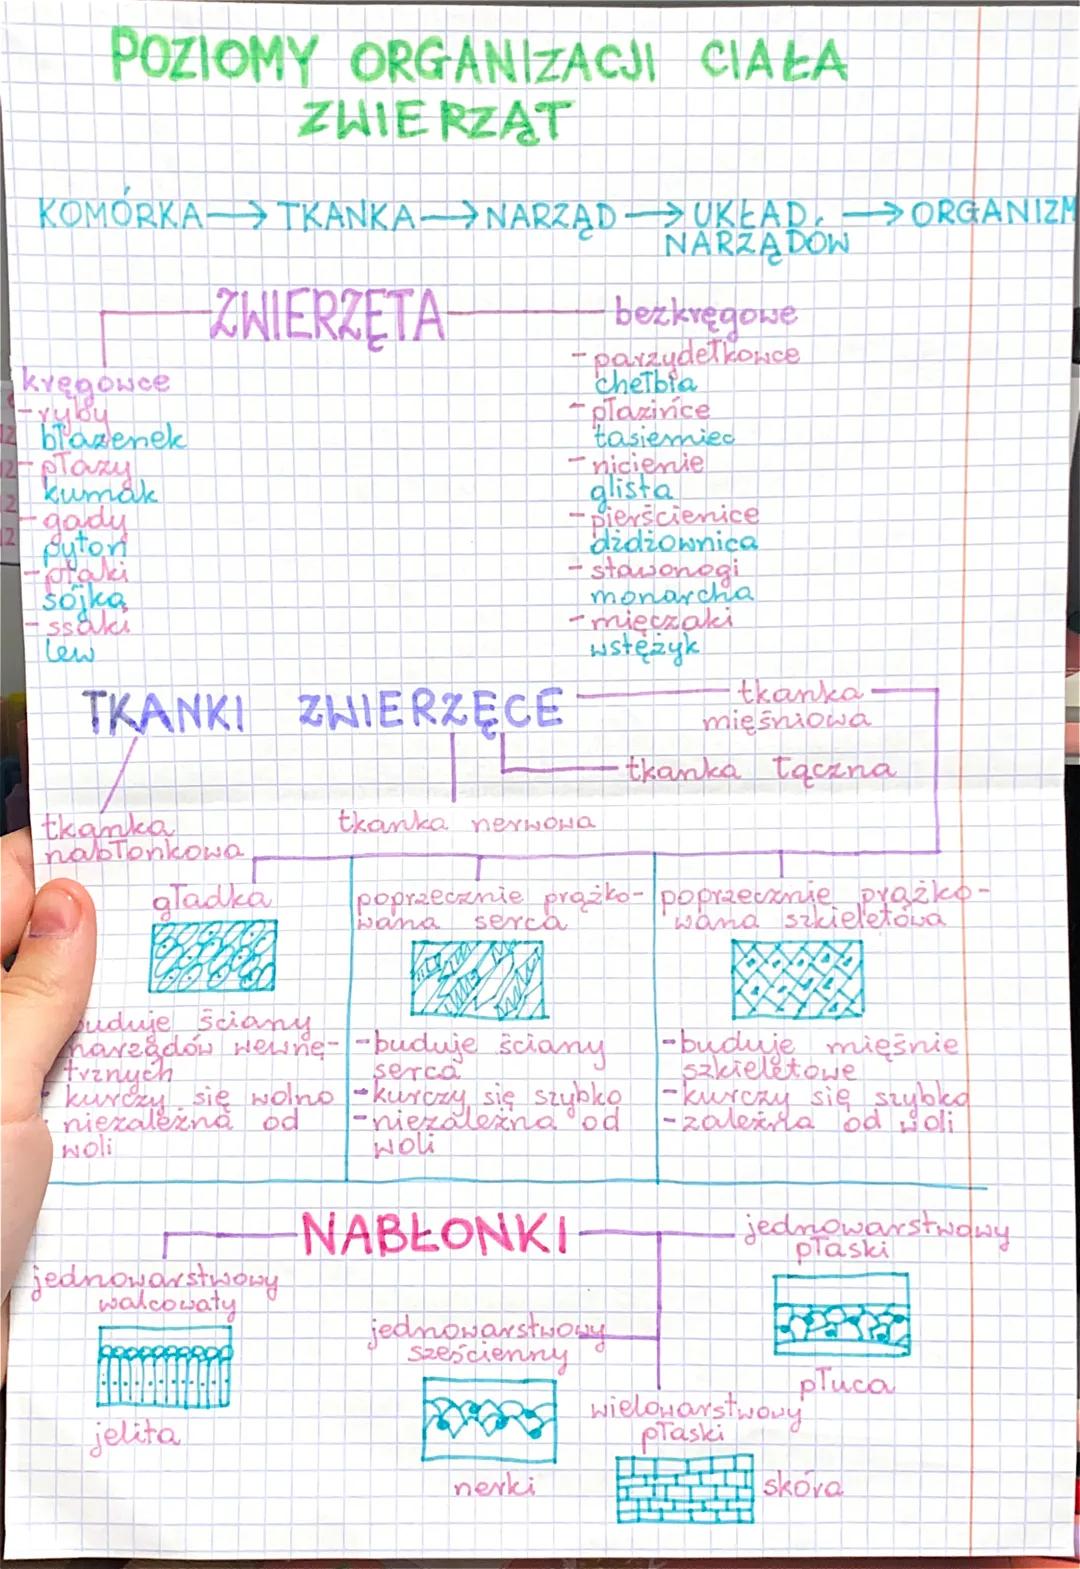 POZIOMY ORGANIZACJI CIAŁA
ZWIERZĄT
KOMÓRKA → TKANKA → NARZĄD → UKŁAD → ORGANIZM
NARZĄDÓW
ZWIERZĘTA
kręgowce
- ryby
błazenek
- płazy
kumak
- gady
pyton
- ptaki
sójka
- ssaki
lew
bezkręgowe
- parzydełkowce
chełbia
- płazińce
tasiemiec
- nicienie
glista
- pierścienice
dżdżownica
- stawonogi
monarcha
- mięczaki
wstężyk
TKANKI ZWIERZĘCE
tkanka
mięśniowa
tkanka łączna
tkanka nerwowa
tkanka
nabłonkowa
gładka
buduje ściany
narządów wewnę-
trznych
- kurczy się wolno
niezależna od
woli
poprzecznie prążko-
wana serca
- buduje ściany
serca
- kurczy się szybko
- niezależna od
woli
poprzecznie prążko-
wana szkieletowa
- buduje mięśnie
szkieletowe
- kurczy się szybko
- zależna od woli
NABŁONKI
jednowarstwowy
walcowaty
jelita
jednowarstwowy
sześcienny
nerki
wielowarstwowy
płaski
skóra
jednowarstwowy
płaski
płuca